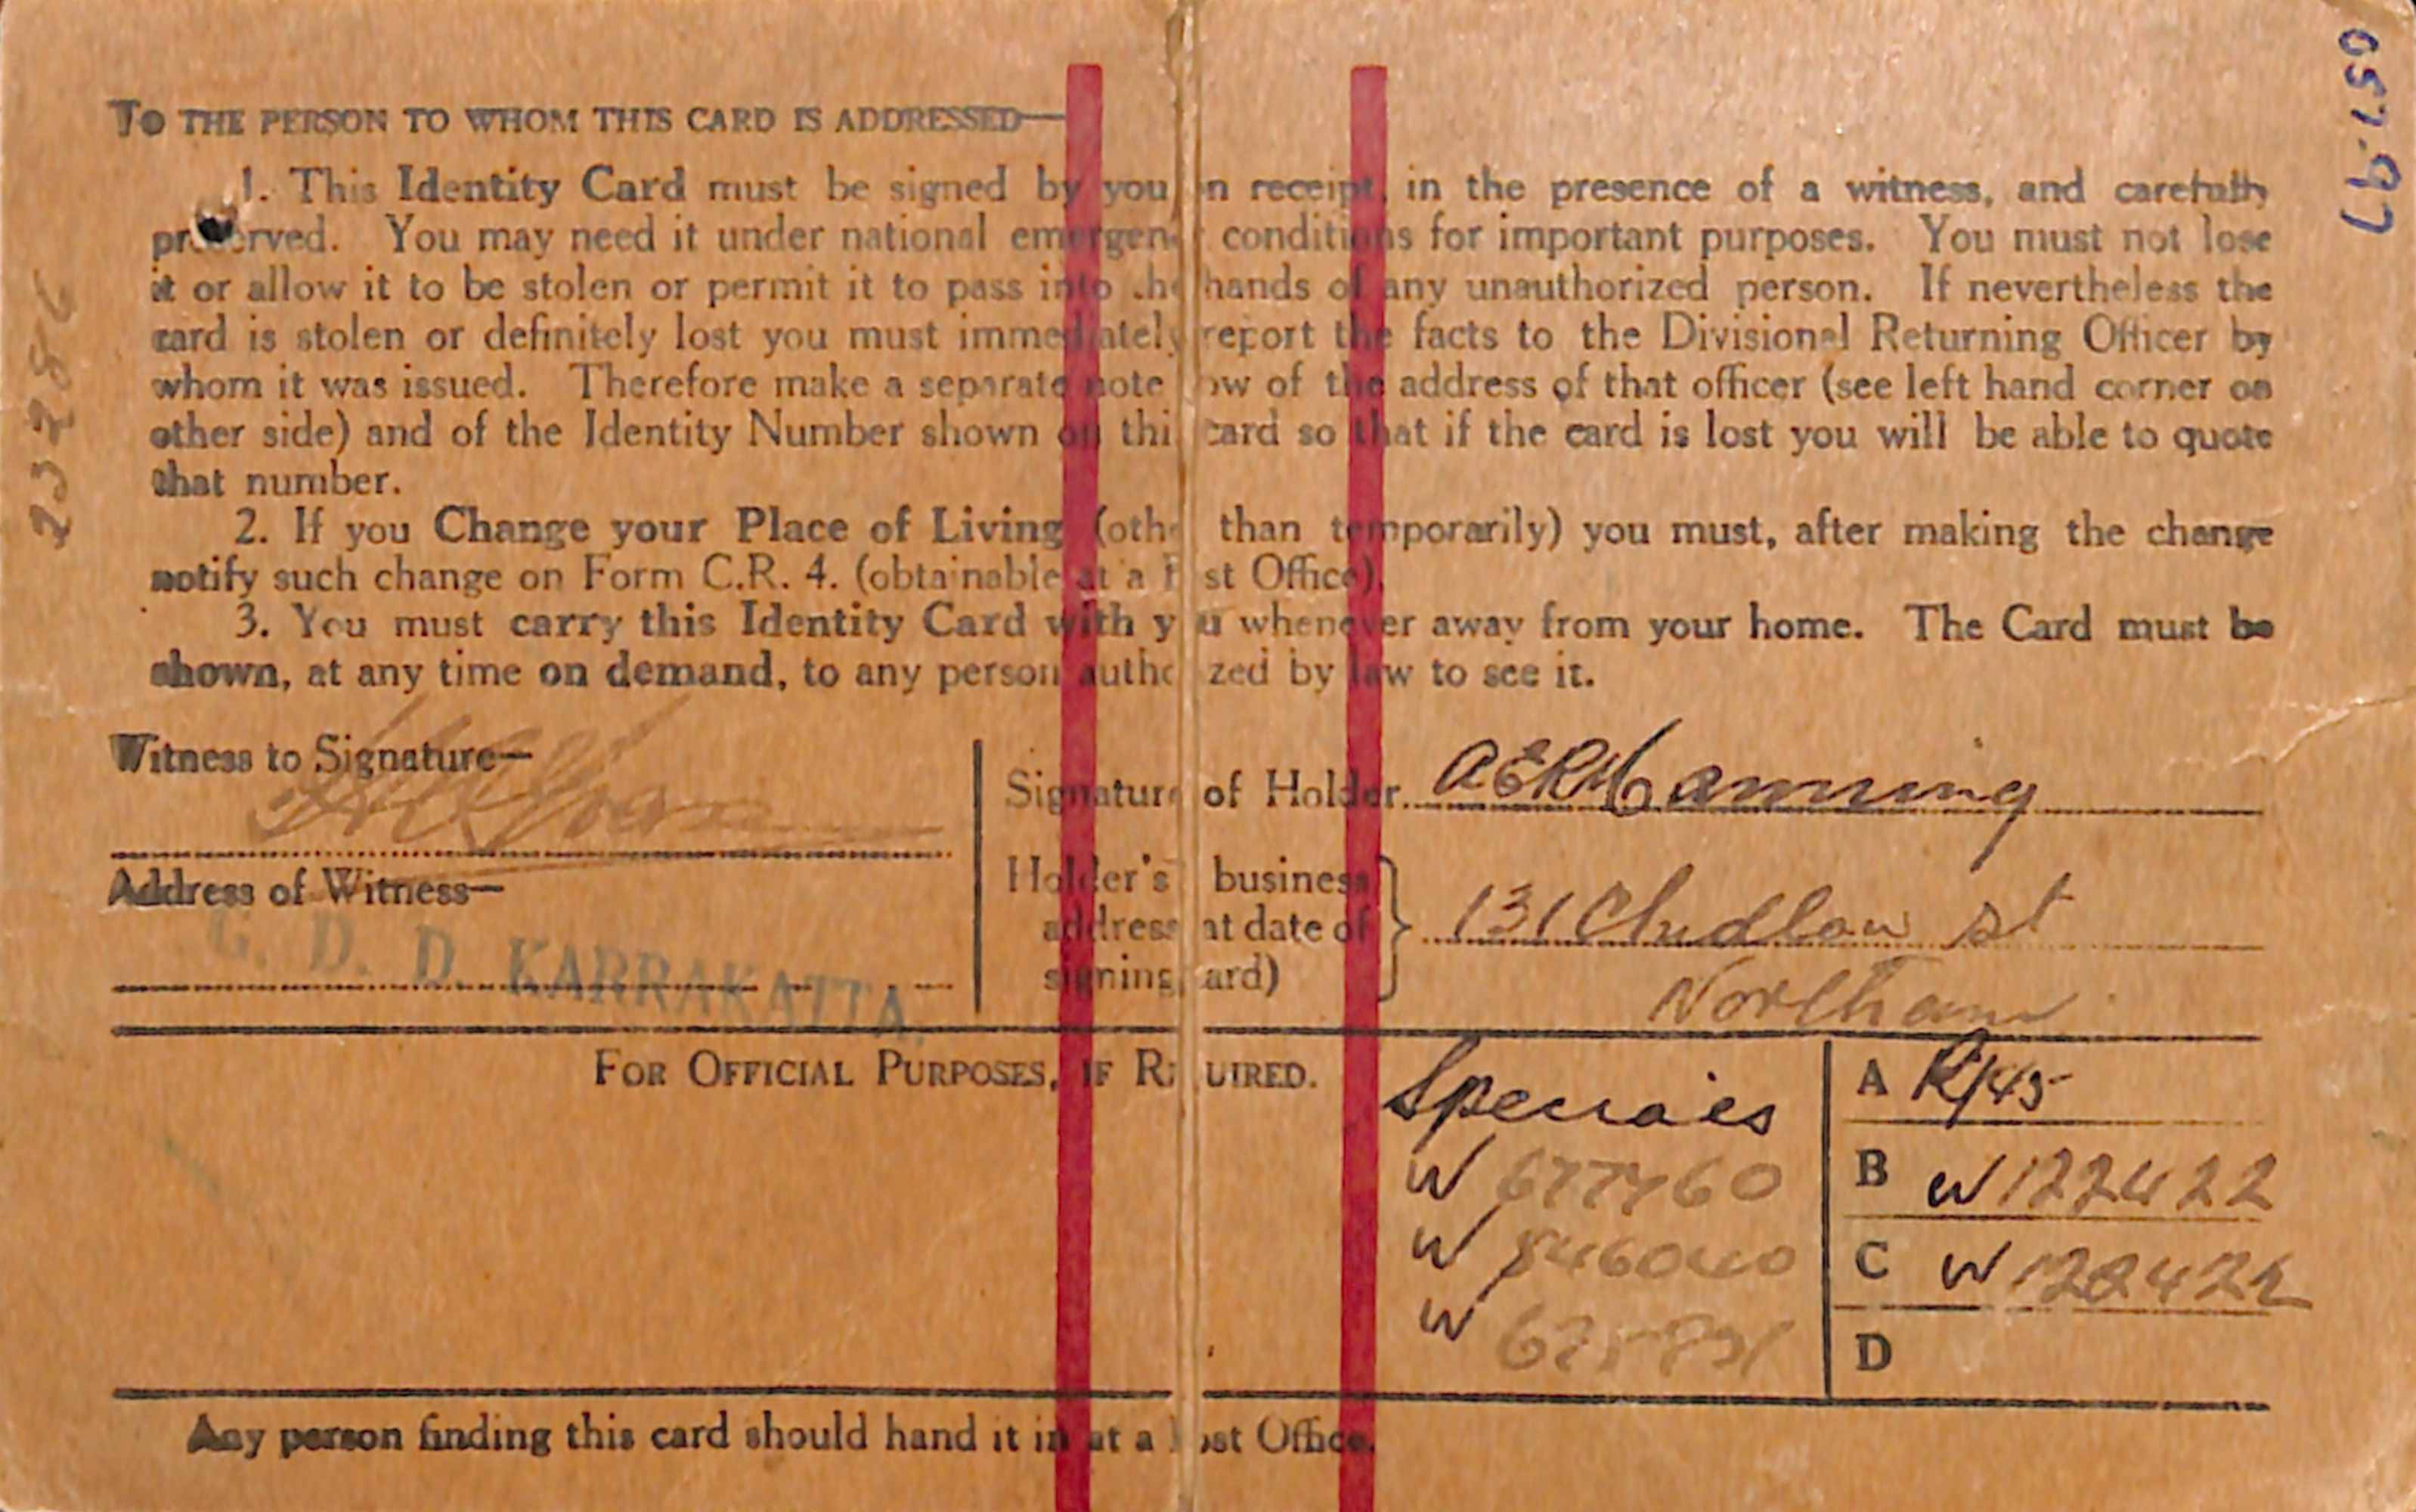 TO THE PERSON TO WHOM THIS CARD IS ADDRESSED—
1. This Identity Card must be signed by you on receipt, in the presence of a witness, and carefully
preserved. You may need it under national emergency conditions for important purposes. You must not lose
it or allow it to be stolen or permit it to pass into the hands of any unauthorized person. If nevertheless the
card is stolen or definitely lost you must immediately report the facts to the Divisional Returning Officer by
whom it was issued. Therefore make a separate note now of the address of that officer (see left hand corner on
other side) and of the Identity Number shown on this card so that if the card is lost you will be able to quote
that number.
2. If you Change your Place of Living (other than temporarily) you must, after making the change
notify such change on Form C.R. 4. (obtainable at a Post Office).
3. You must carry this Identity Card with you whenever away from your home. The Card must be
shown, at any time on demand, to any person authorized by law to see it.
Witness to Signature—
Signature of Holder. A E R Manning
Address of Witness—
G. D. D. KARRAKATTA.
Holder's business
address at date of
signing card)
131 Chidlow St
Northam
FOR OFFICIAL PURPOSES, IF REQUIRED.
Specials
W 677460
W 846040
W
A R/45
B W122422
C W122422
D
Any person finding this card should hand it in at a Post Office.
057.97